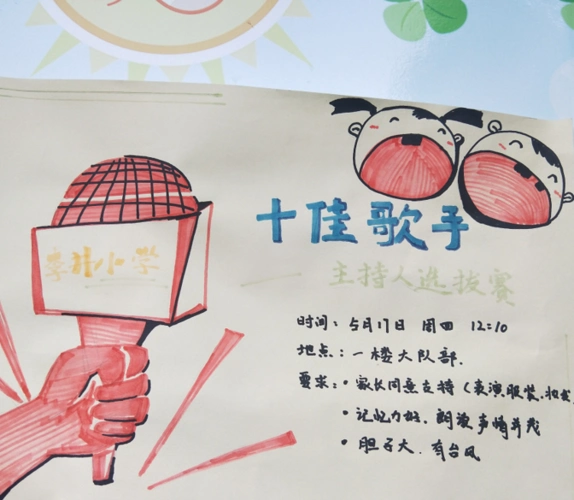 十佳歌手
主持人选拔赛
李井小学
时间：5月17日 周四 12:10
地点：一楼大队部.
要求：·家长同意支持（表演服装、妆
·记忆力好、朗读声情并茂
·胆子大、有台风